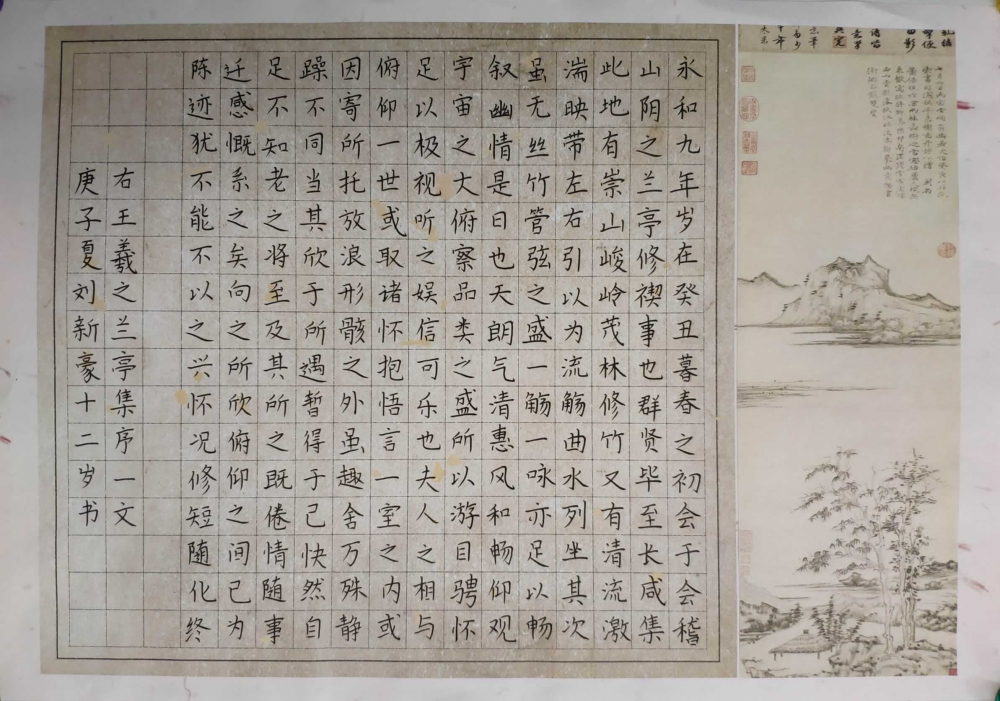 永和九年岁在癸丑暮春之初会于会稽
山阴之兰亭修禊事也群贤毕至长咸集
此地有崇山峻岭茂林修竹又有清流激
湍映带左右引以为流觞曲水列坐其次
虽无丝竹管弦之盛一觞一咏亦足以畅
叙幽情是日也天朗气清惠风和畅仰观
宇宙之大俯察品类之盛所以游目骋怀
足以极视听之娱信可乐也夫人之相与
俯仰一世或取诸怀抱悟言一室之内或
因寄所托放浪形骸之外虽趣舍万殊静
躁不同当其欣于所遇暂得于己快然自
足不知老之将至及其所之既倦情随事
迁感慨系之矣向之所欣俯仰之间已为
陈迹犹不能不以之兴怀况修短随化终
右王羲之兰亭集序一文
庚子夏刘新豪十二岁书